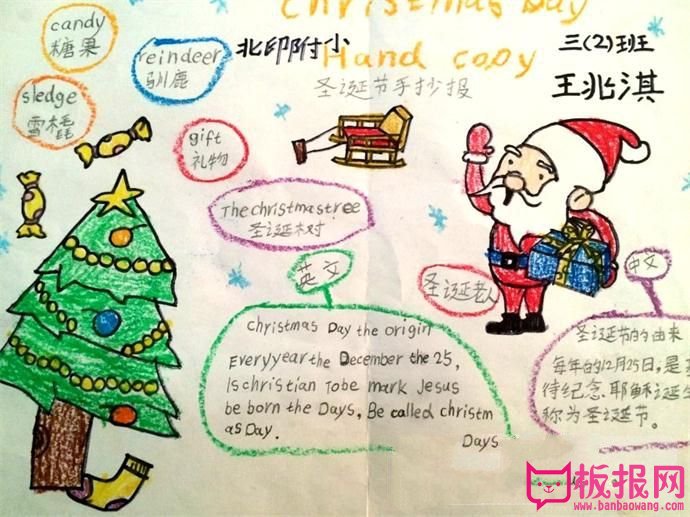 Christmas Day
Hand copy
圣诞节手抄报
北印附小
三(2)班
王兆淇
candy
糖果
reindeer
驯鹿
sledge
雪橇
gift
礼物
The christmastree
圣诞树
英文
圣诞老人
中文
Christmas Day the origin
Everyyear the December the 25,
Is christian Tobe mark Jesus
be born the Days, Be called christm
as Day.
Days
圣诞节的由来
每年的12月25日,是
待纪念耶稣诞生
称为圣诞节。
板报网
www.banbaowang.com